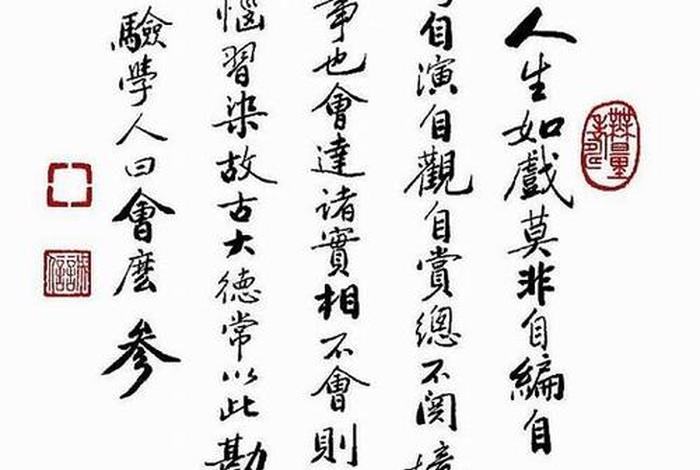 人生如戲莫非自編自
自演自觀自賞總不関
事也會達諸實相不會則
惱習染故古大德常以此勘
驗學人曰會麼參